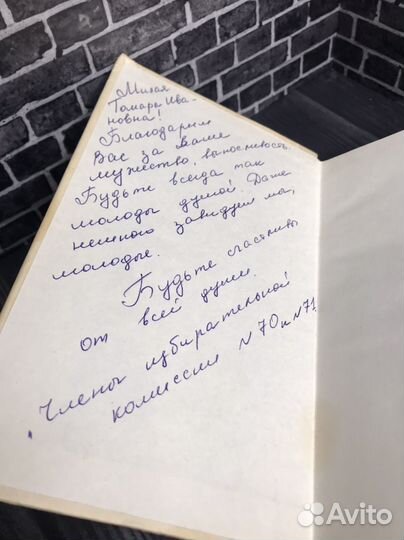 Милая
Тамара Ива-
новна!
Благодарим
Вас за Ваше
мужество, выносливость.
Будьте всегда так
молоды душой. Даже
немного завидуем мы,
молодые.
Будьте счастливы
от всей души.
Члены избирательной
комиссии N70 и N71.
Avito